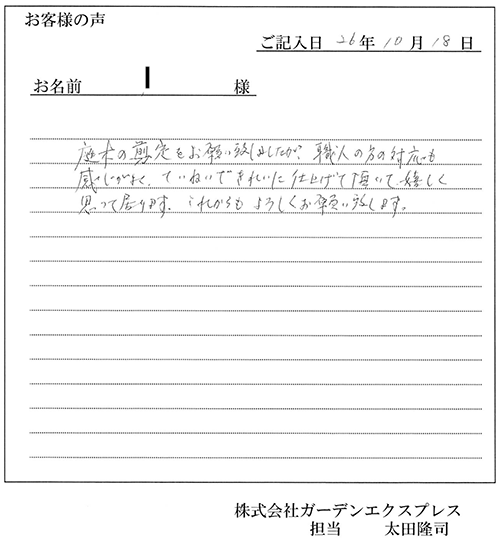 お客様の声
ご記入日 26年 10月 18日
お名前 様
庭木の剪定をお願い致しましたが、職人の方の対応も
感じがよく、ていねいできれいに仕上げて頂いて、嬉しく
思って居ります。これからもよろしくお願い致します。
株式会社ガーデンエクスプレス
担当 太田隆司